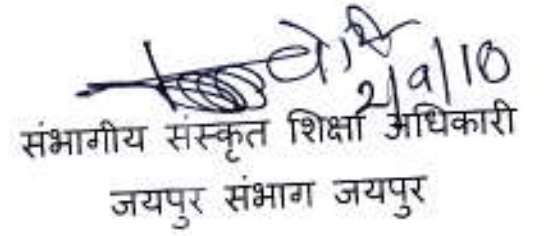 2/9/10
संभागीय संस्कृत शिक्षा अधिकारी
जयपुर संभाग जयपुर